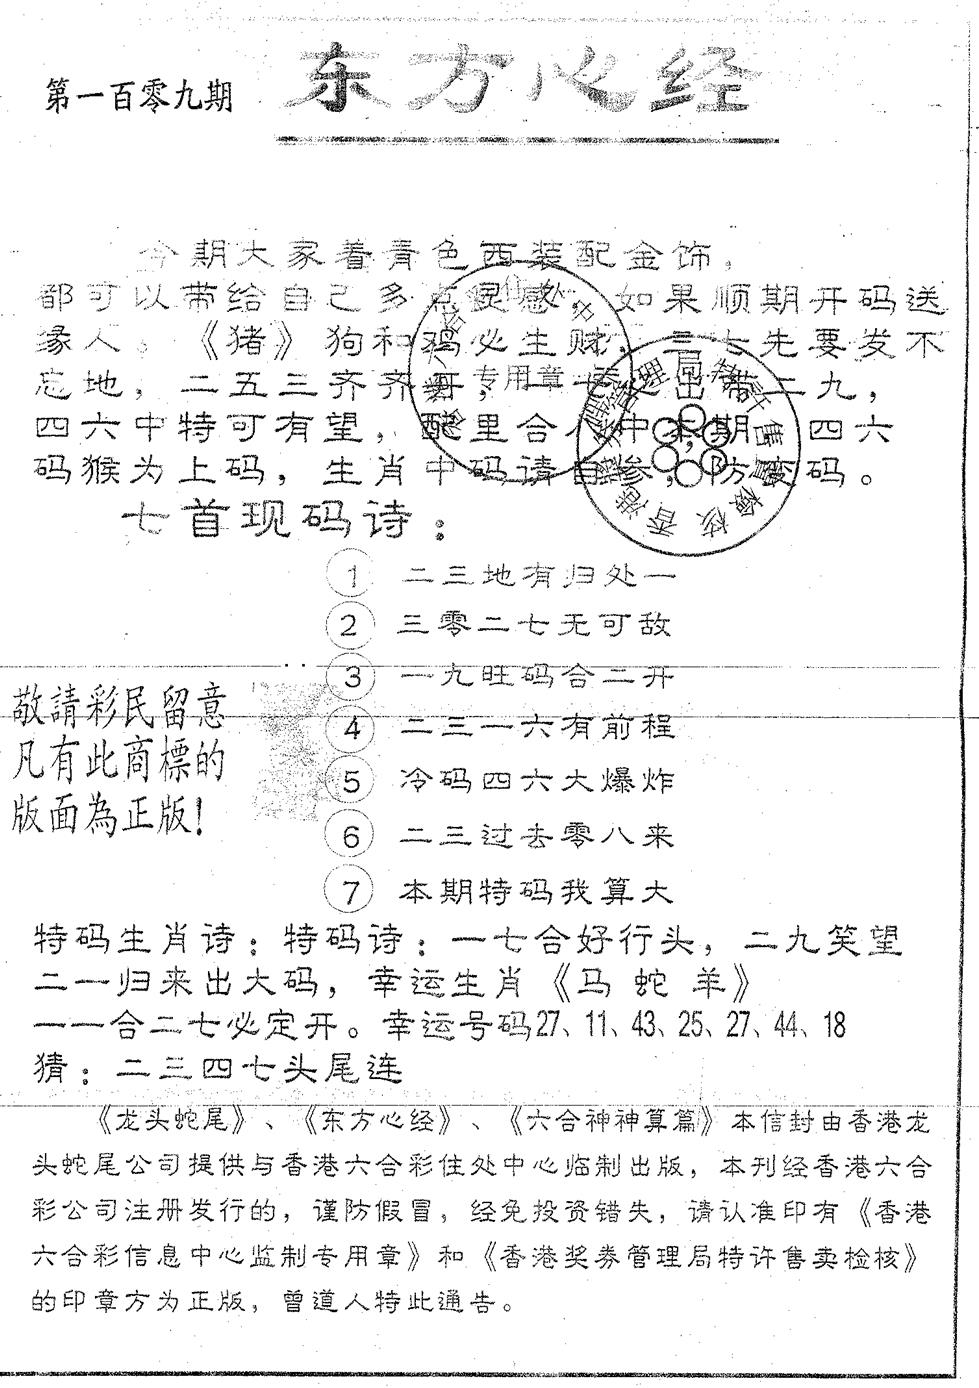 第一百零九期
东方心经
今期大家着青色西装配金饰，
都可以带给自己多点灵感，如果顺期开码送
缘人，《猪》狗和鸡必生财，三七先要发不
忘地，二五三齐齐开，一七
出带二九，
四六中特可有望，配里合八中本期，四六
码猴为上码，生肖中码请自参，防
码。
七首现码诗：
① 二三地有归处一
② 三零二七无可敌
③ 一九旺码合二开
④ 二三一六有前程
⑤ 冷码四六大爆炸
⑥ 二三过去零八来
⑦ 本期特码我算大
敬請彩民留意
凡有此商標的
版面為正版！
特码生肖诗：特码诗：一七合好行头，二九笑望
二一归来出大码，幸运生肖《马 蛇 羊》
一一合二七必定开。幸运号码27、11、43、25、27、44、18
猜：二三四七头尾连
《龙头蛇尾》、《东方心经》、《六合神神算篇》本信封由香港龙
头蛇尾公司提供与香港六合彩住处中心临制出版，本刊经香港六合
彩公司注册发行的，谨防假冒，经免投资错失，请认准印有《香港
六合彩信息中心监制专用章》和《香港奖券管理局特许售卖检核》
的印章方为正版，曾道人特此通告。
专用章
香港獎券管理局特許售賣檢核